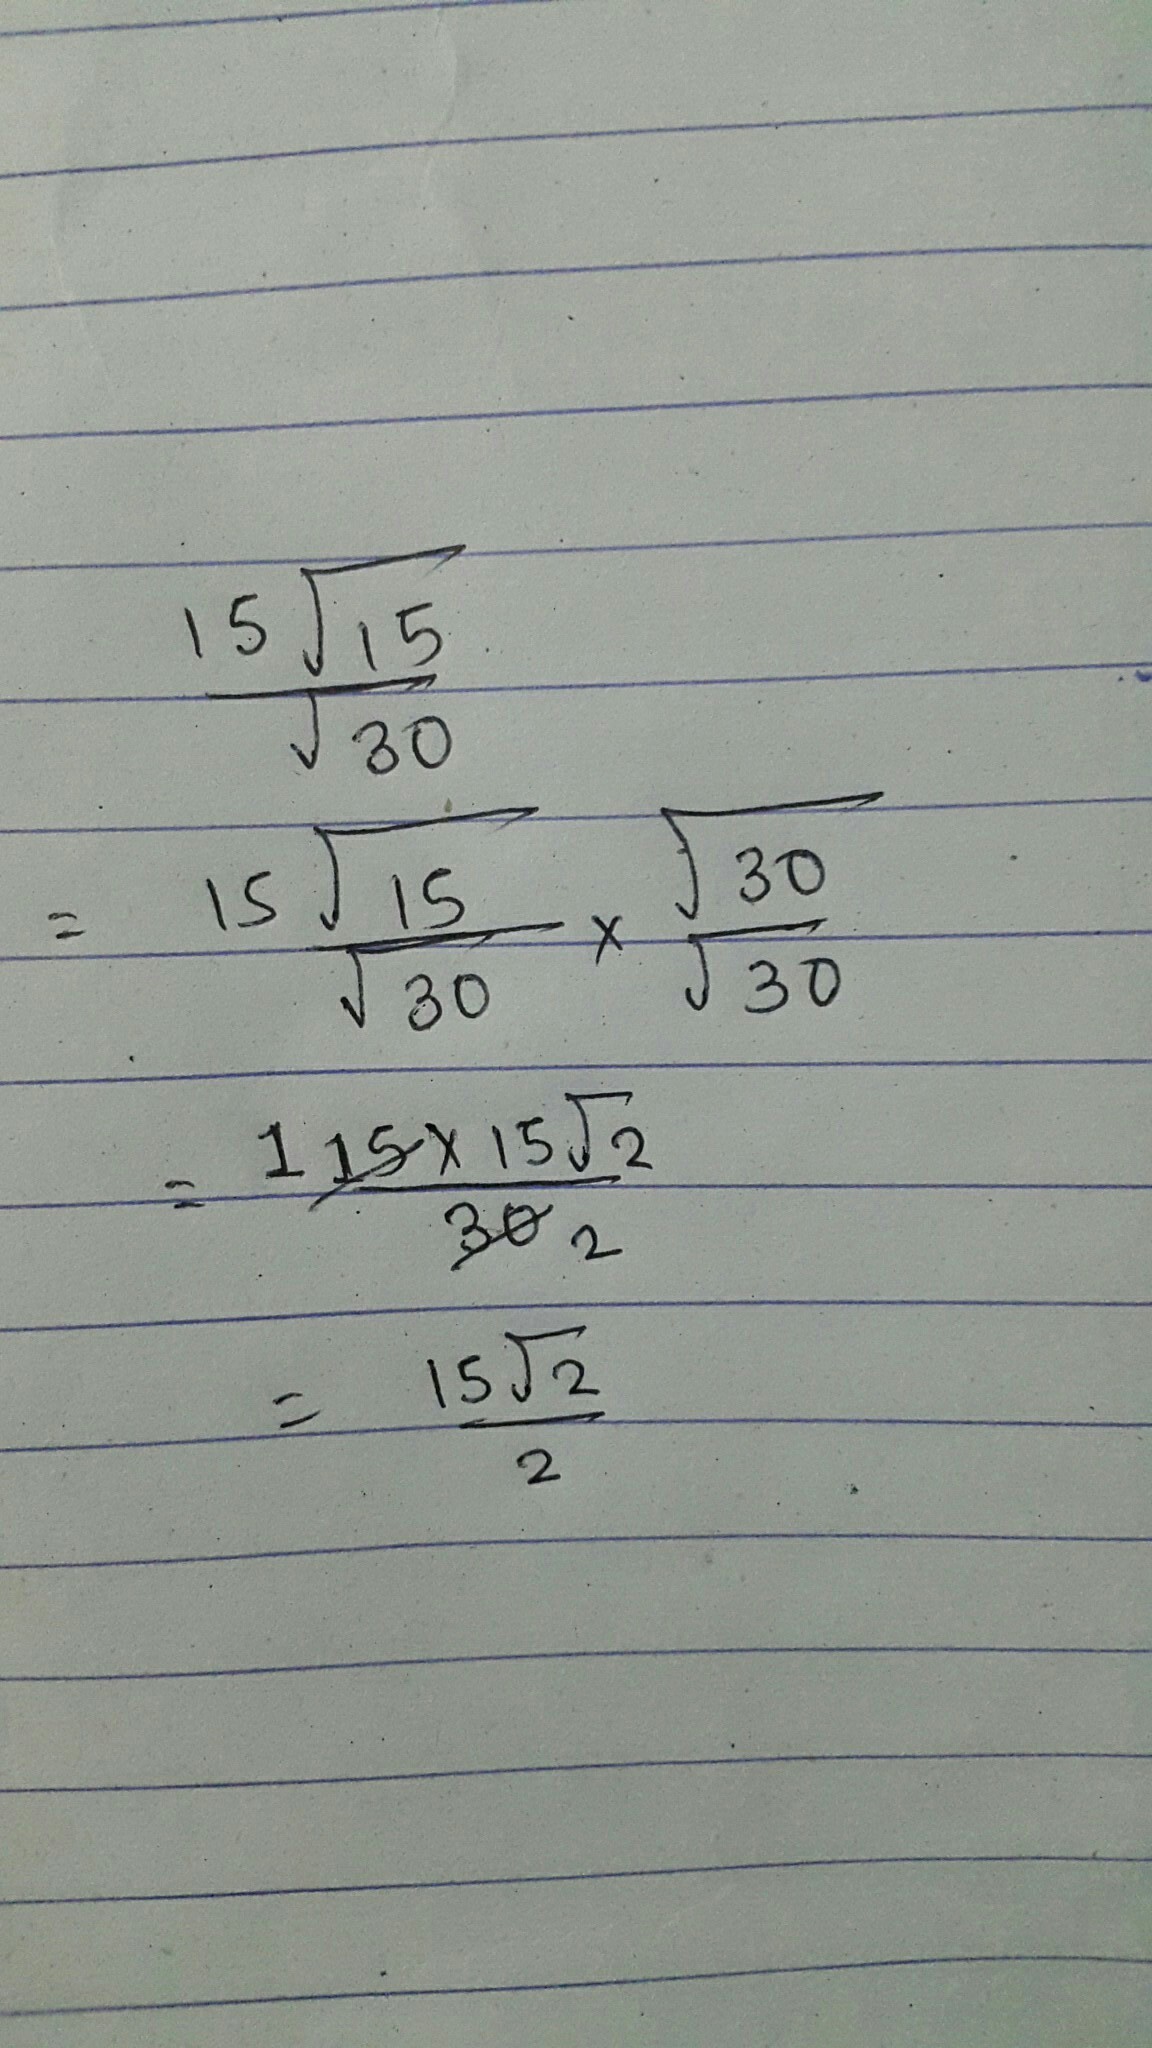 15√15
√30
= 15√15 / √30 × √30 / √30
= 1 15 × 15√2 / 30 2
= 15√2 / 2